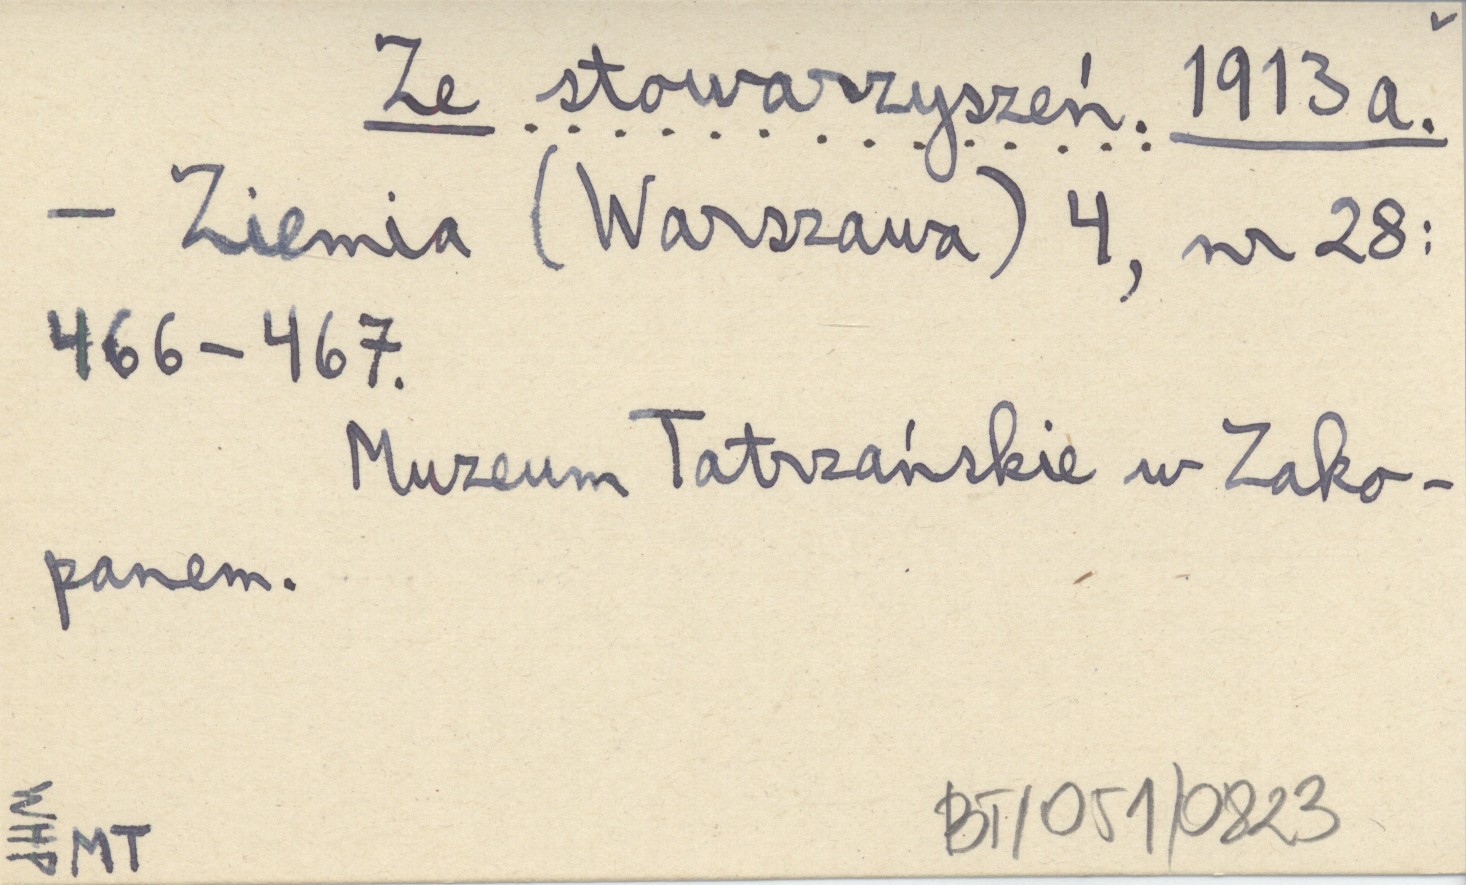 Ze stowarzyszeń. 1913 a.
— Ziemia (Warszawa) 4, nr 28:
466–467.
Muzeum Tatrzańskie w Zako-
panem.
WHP
MT
BT/051/0823